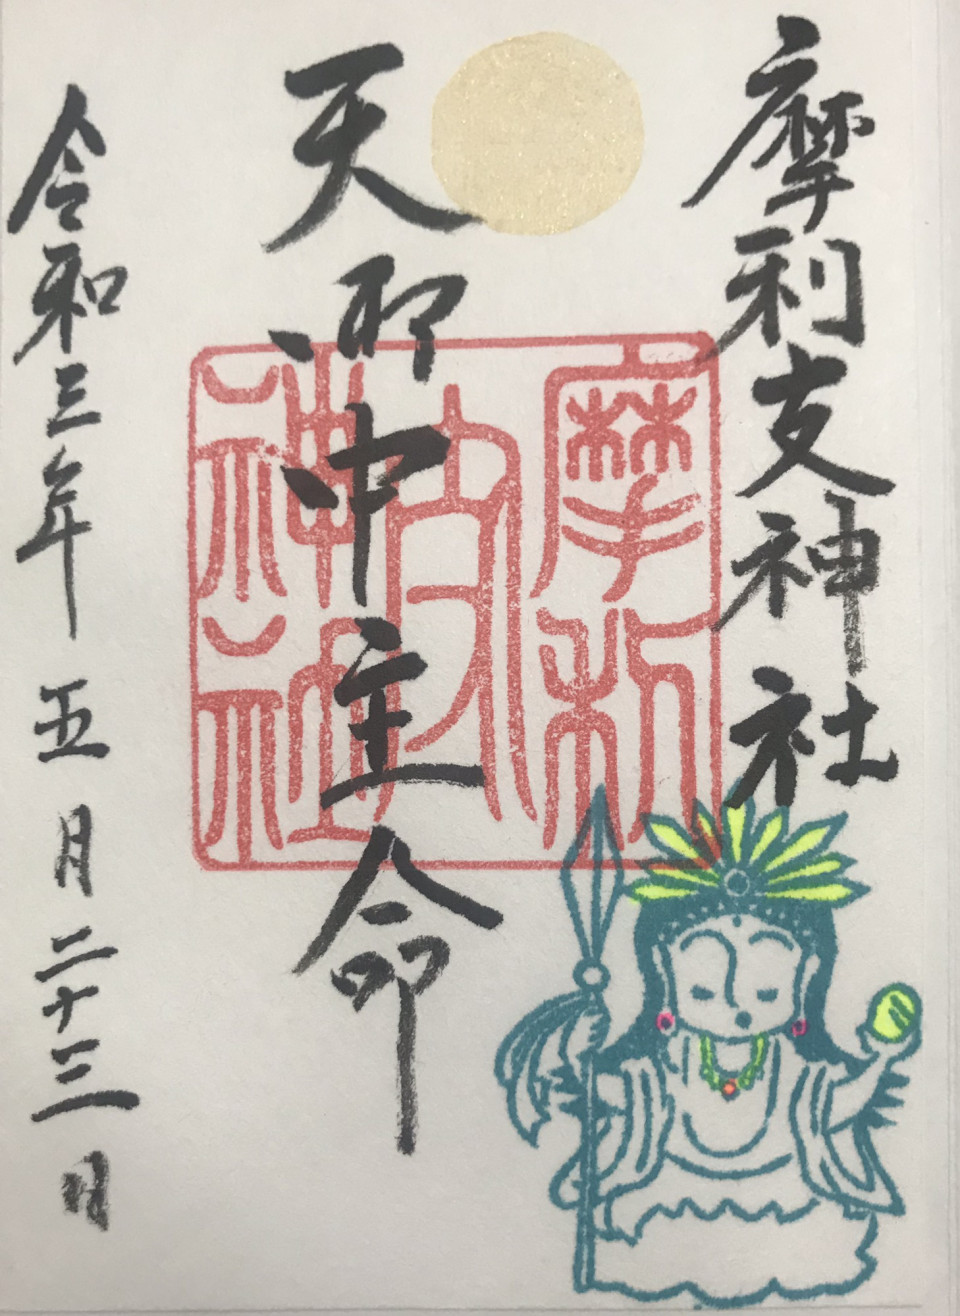 摩利支神社
天御中主命
摩利
支
神社
令和三年五月二十三日